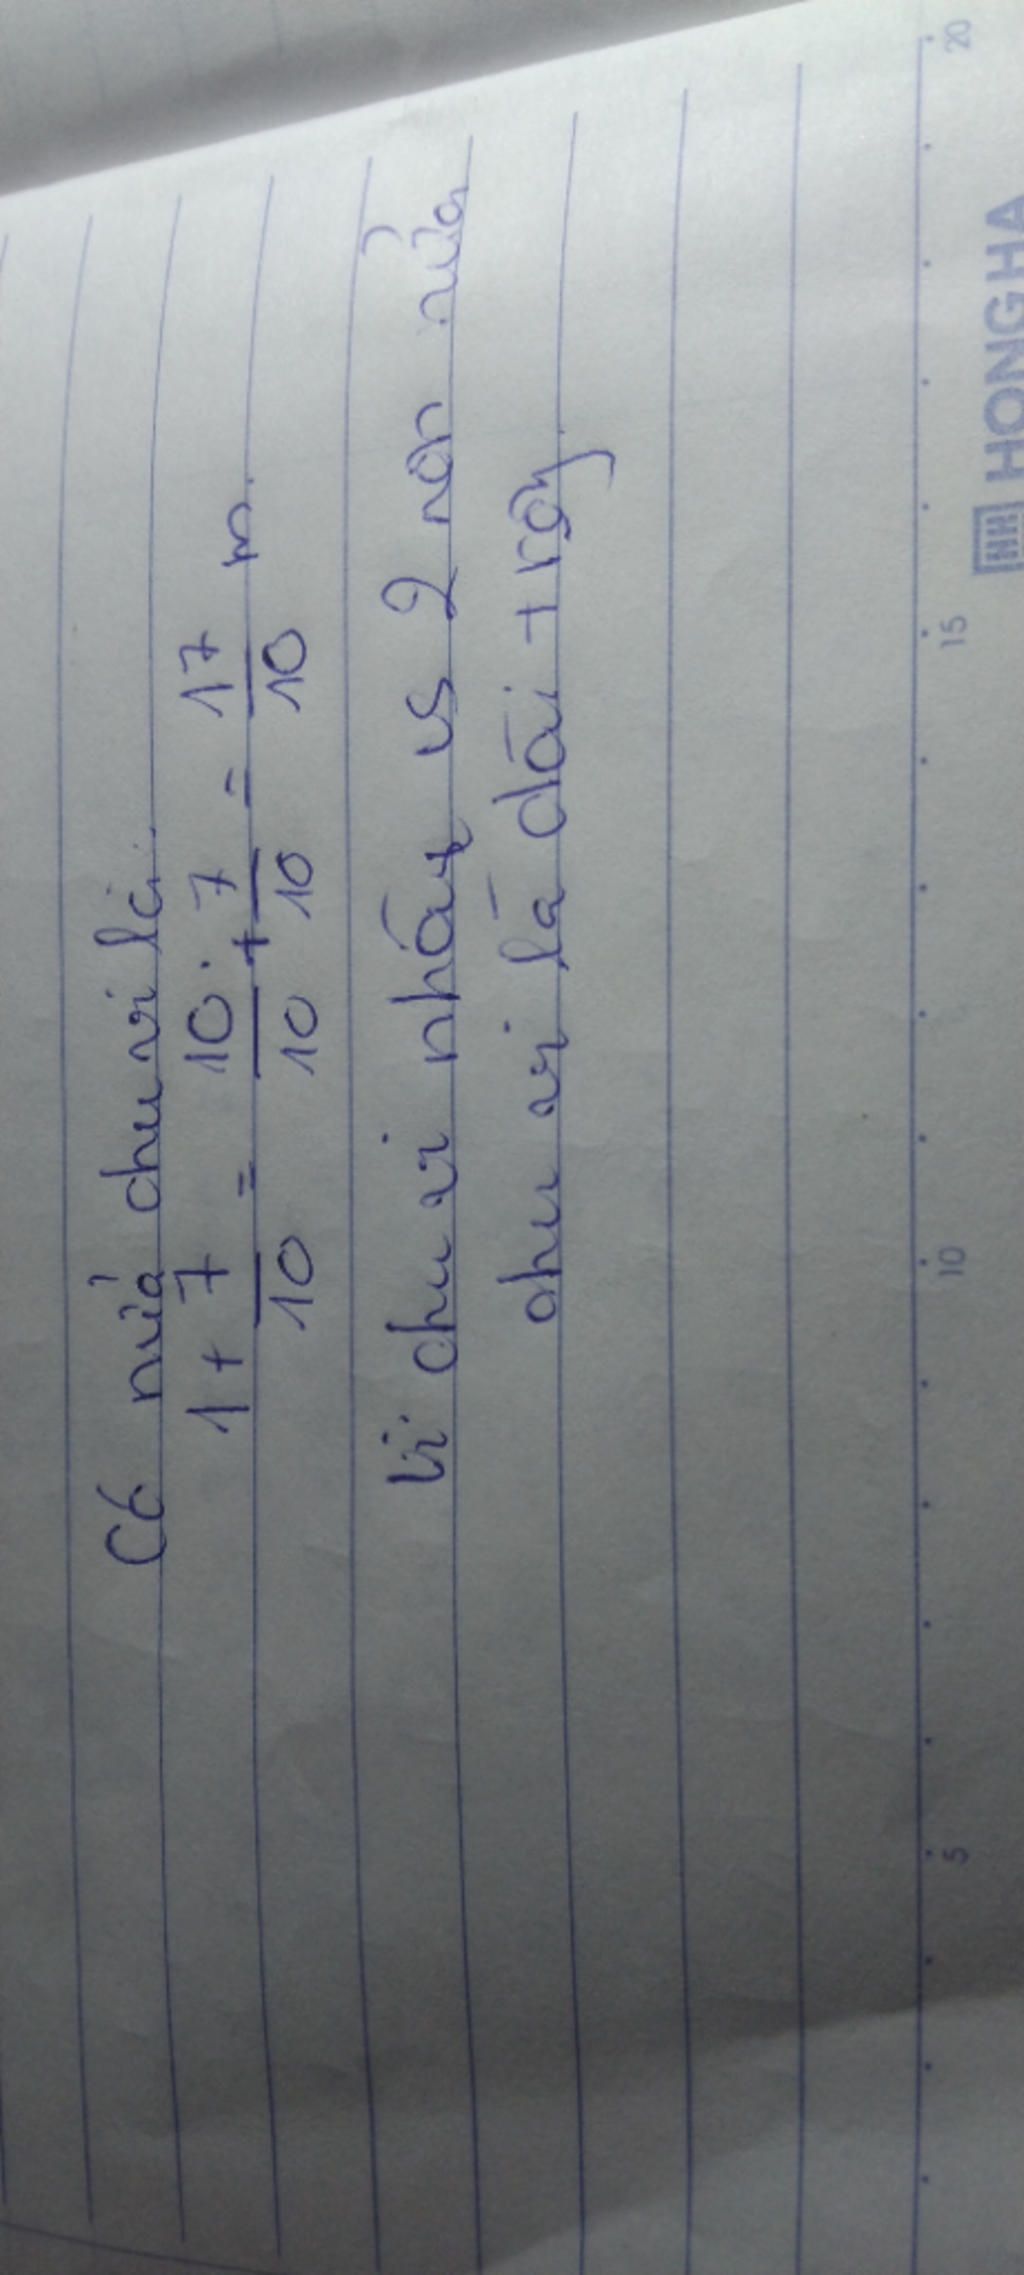 Có nửa chu vi là:
1 + 7/10 = 10/10 + 7/10 = 17/10 m.
Vì chu vi nhân vs 2 nên nửa
chu vi là dài + rộng
5 10 15 20
HONG HA